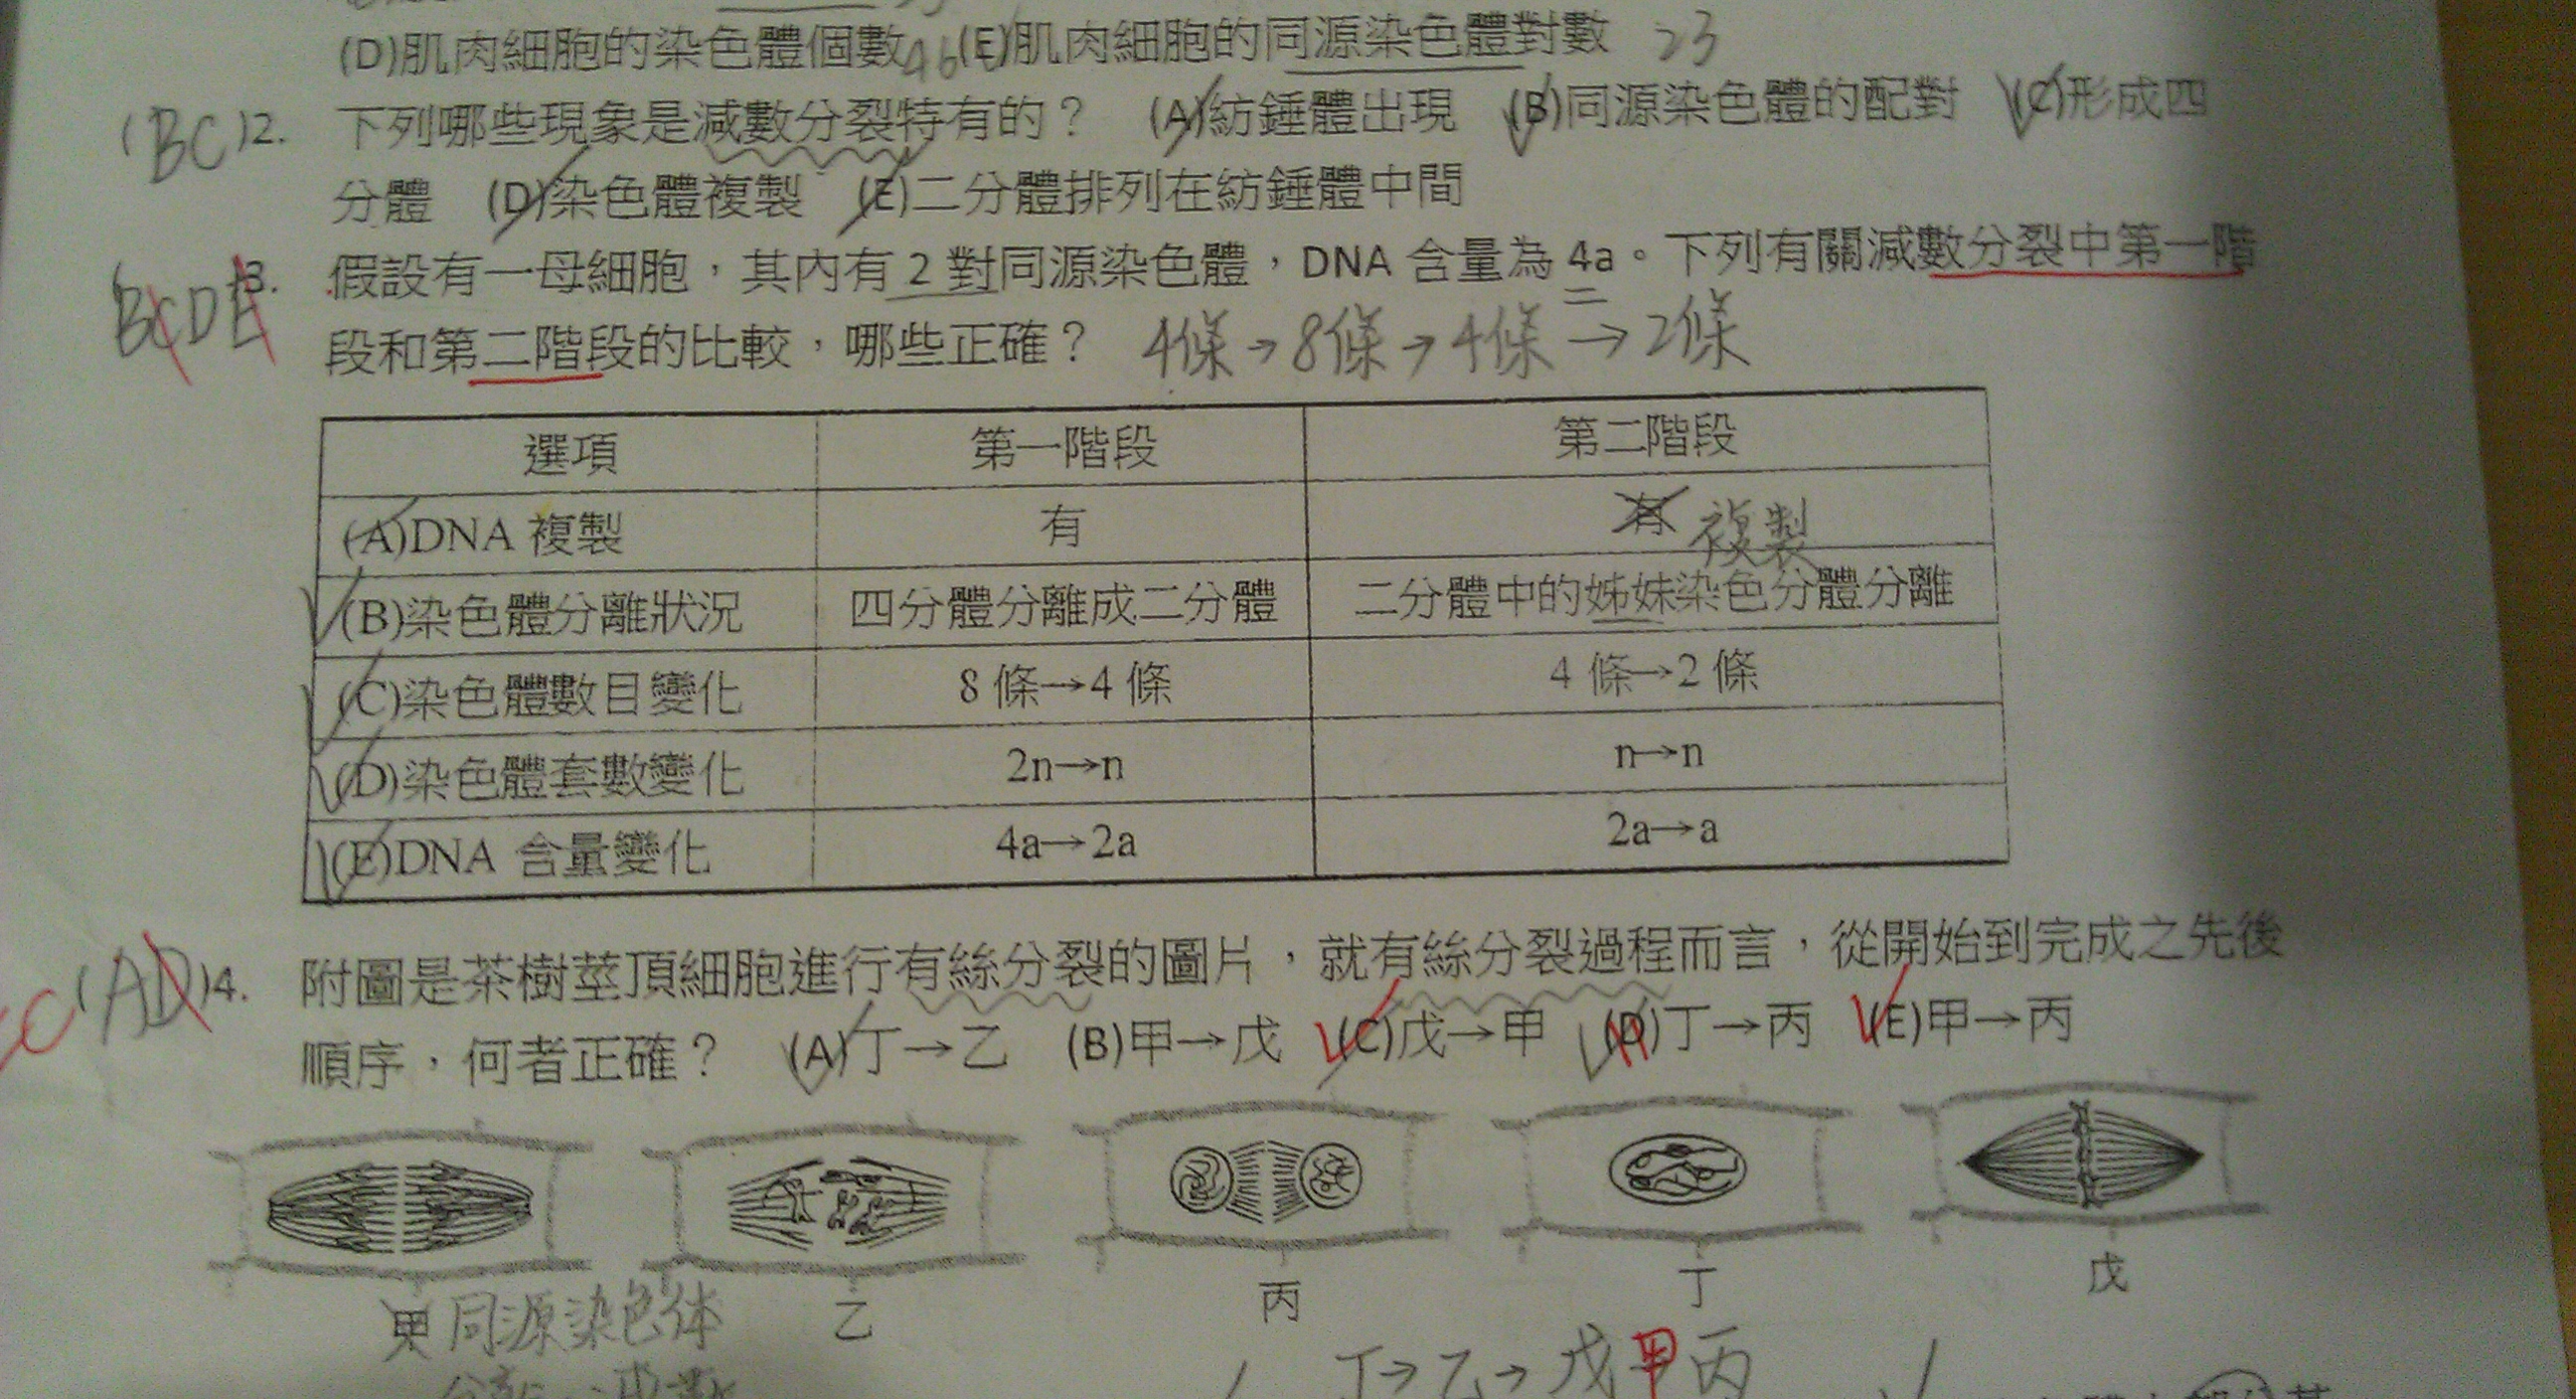 (D)肌肉細胞的染色體個數 46 (E)肌肉細胞的同源染色體對數 23
(BC)2. 下列哪些現象是減數分裂特有的？ (A)紡錘體出現 (B)同源染色體的配對 (C)形成四
分體 (D)染色體複製 (E)二分體排列在紡錘體中間
BCDE 3. 假設有一母細胞，其內有 2 對同源染色體，DNA 含量為 4a。下列有關減數分裂中第一階
段和第二階段的比較，哪些正確？ 4條→8條→4條→2條
選項 第一階段 第二階段
(A)DNA 複製 有 有 複製
(B)染色體分離狀況 四分體分離成二分體 二分體中的姊妹染色分體分離
(C)染色體數目變化 8 條→4 條 4 條→2 條
(D)染色體套數變化 2n→n n→n
(E)DNA 含量變化 4a→2a 2a→a
C (AD)4. 附圖是茶樹莖頂細胞進行有絲分裂的圖片，就有絲分裂過程而言，從開始到完成之先後
順序，何者正確？ (A)丁→乙 (B)甲→戊 (C)戊→甲 (D)丁→丙 (E)甲→丙
甲 同源染色体 乙 丙 丁 戊
丁→乙→戊甲丙